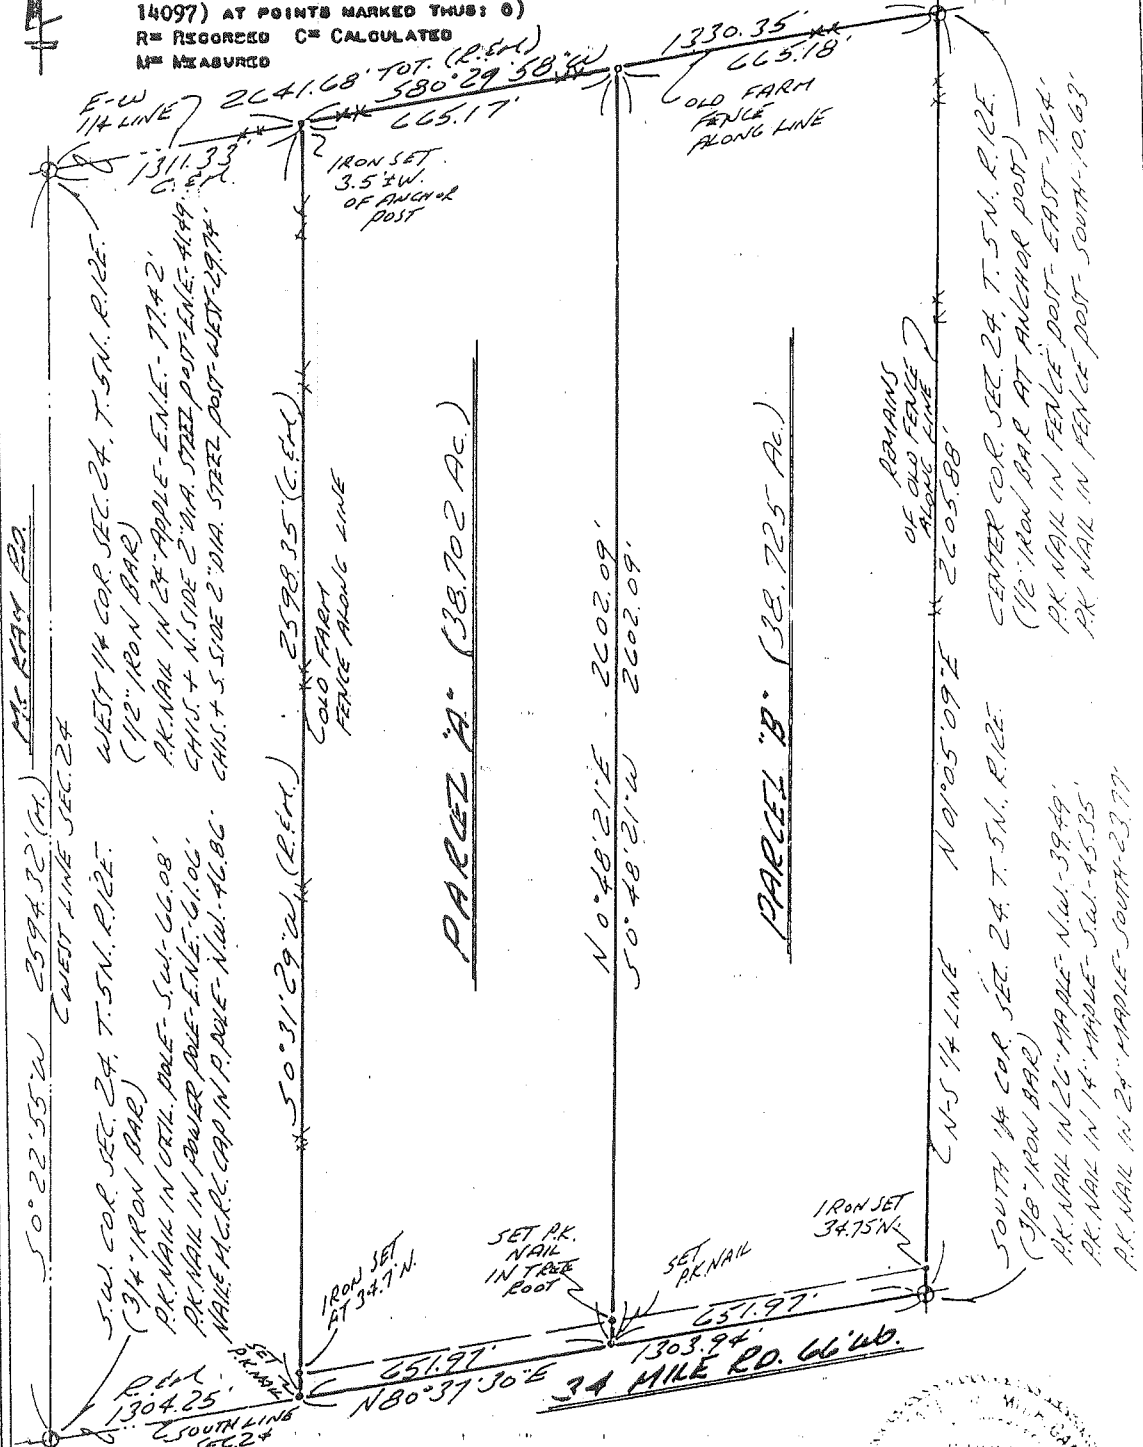 14097) AT POINTS MARKED THUS: O)
R= RECORDED C= CALCULATED
M= MEASURED
E-W
1/4 LINE
2641.68' TOT. (R.&M.)
S80°29'58"W
1330.35'
665.18'
665.17'
1311.33'
C.&M.
OLD FARM
FENCE
ALONG LINE
IRON SET
3.5'±W.
OF ANCHOR
POST
McKAY RD.
S0°22'55"W 2594.32'(M.)
WEST LINE SEC. 24
WEST 1/4 COR. SEC. 24, T.5N. R.12E.
(1/2" IRON BAR)
P.K. NAIL IN 24" APPLE - E.N.E. - 77.42'
CHIS. + N. SIDE 2" DIA. STEEL POST - E.N.E. - 41.49'
CHIS. + S. SIDE 2" DIA. STEEL POST - WEST - 29.74'
S.W. COR. SEC. 24, T.5N. R.12E.
(3/4" IRON BAR)
P.K. NAIL IN UTIL. POLE - S.W. - 66.08'
P.K. NAIL IN POWER POLE - E.N.E. - 61.06'
NAIL & M.C.R.C. CAP IN P. POLE - N.W. - 46.86'
S0°31'29"W (R.&M.) 2598.35' (C.&M.)
OLD FARM
FENCE ALONG LINE
PARCEL "A" (38.702 Ac.)
N0°48'21"E - 2602.09'
S0°48'21"W 2602.09'
PARCEL "B" (38.725 Ac.)
REMAINS
OF OLD FENCE
ALONG LINE
N-S 1/4 LINE N01°05'09"E 2605.88'
CENTER COR. SEC. 24, T.5N. R.12E.
(1/2" IRON BAR AT ANCHOR POST)
P.K. NAIL IN FENCE POST - EAST - 7.64'
P.K. NAIL IN FENCE POST - SOUTH - 10.63'
SOUTH 1/4 COR. SEC. 24, T.5N. R.12E.
(3/8" IRON BAR)
P.K. NAIL IN 26" MAPLE - N.W. - 39.49'
P.K. NAIL IN 14" MAPLE - S.W. - 45.35'
P.K. NAIL IN 24" MAPLE - SOUTH - 23.77'
IRON SET
AT 34.7' N.
SET P.K.
NAIL
IN TREE
ROOT
SET
P.K. NAIL
IRON SET
34.75' N.
SET
P.K. NAIL
R.&M.
1304.25'
SOUTH LINE
SEC. 24
651.97'
N80°37'30"E
651.97'
1303.94'
34 MILE RD. 66' WD.